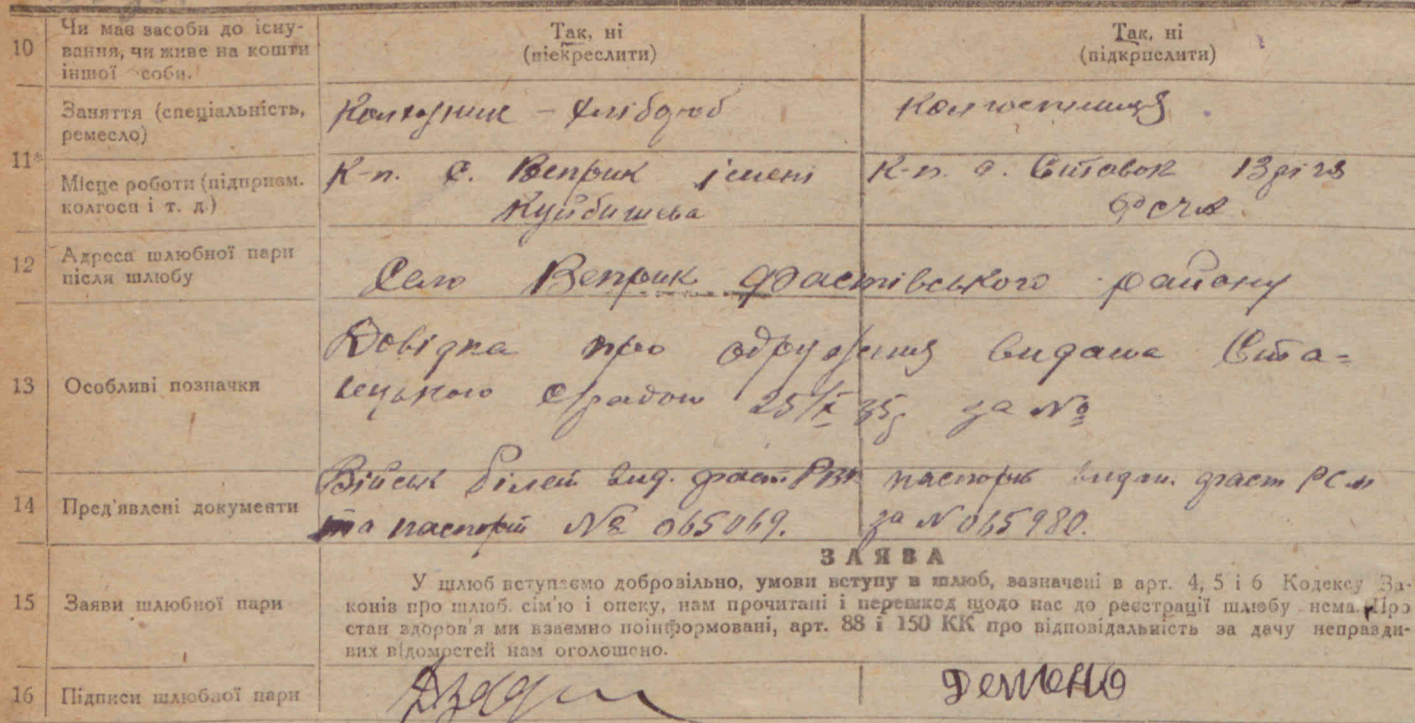 10 Чи має засоби до існу-
вання, чи живе на кошти
іншої соби.
Так, ні
(піекреслити)
Так, ні
(підкрпслити)
11*
Заняття (спеціальність,
ремесло)
Колхузник - хлібороб
Колгоспниця
Місце роботи (підприєм.
колгосп і т. д.)
К-п. С. Веприк імені
Куйбишева
К-п. с. Ставок
12 Адреса шлюбної пари
після шлюбу
Село Веприк Фастівського району
13 Особливі позначки
Довідка про одруження видана Ста-
срадою 25/X 35 за №
14 Пред'явлені документи
Військ білет вид. фаст. РВК
та паспорт № 065069.
паспорт видан. фаст РСМ
за № 065980.
15 Заяви шлюбної пари
ЗАЯВА
У шлюб вступаємо добровільно, умови вступу в шлюб, зазначені в арт. 4, 5 і 6 Кодексу За-
конів про шлюб. сім'ю і опеку, нам прочитані і перешкод щодо нас до реєстрації шлюбу нема. Про
стан здоров'я ми взаємно поінформовані, арт. 88 і 150 КК про відповідальність за дачу неправди-
вих відомостей нам оголошено.
16 Підписи шлюбної пари